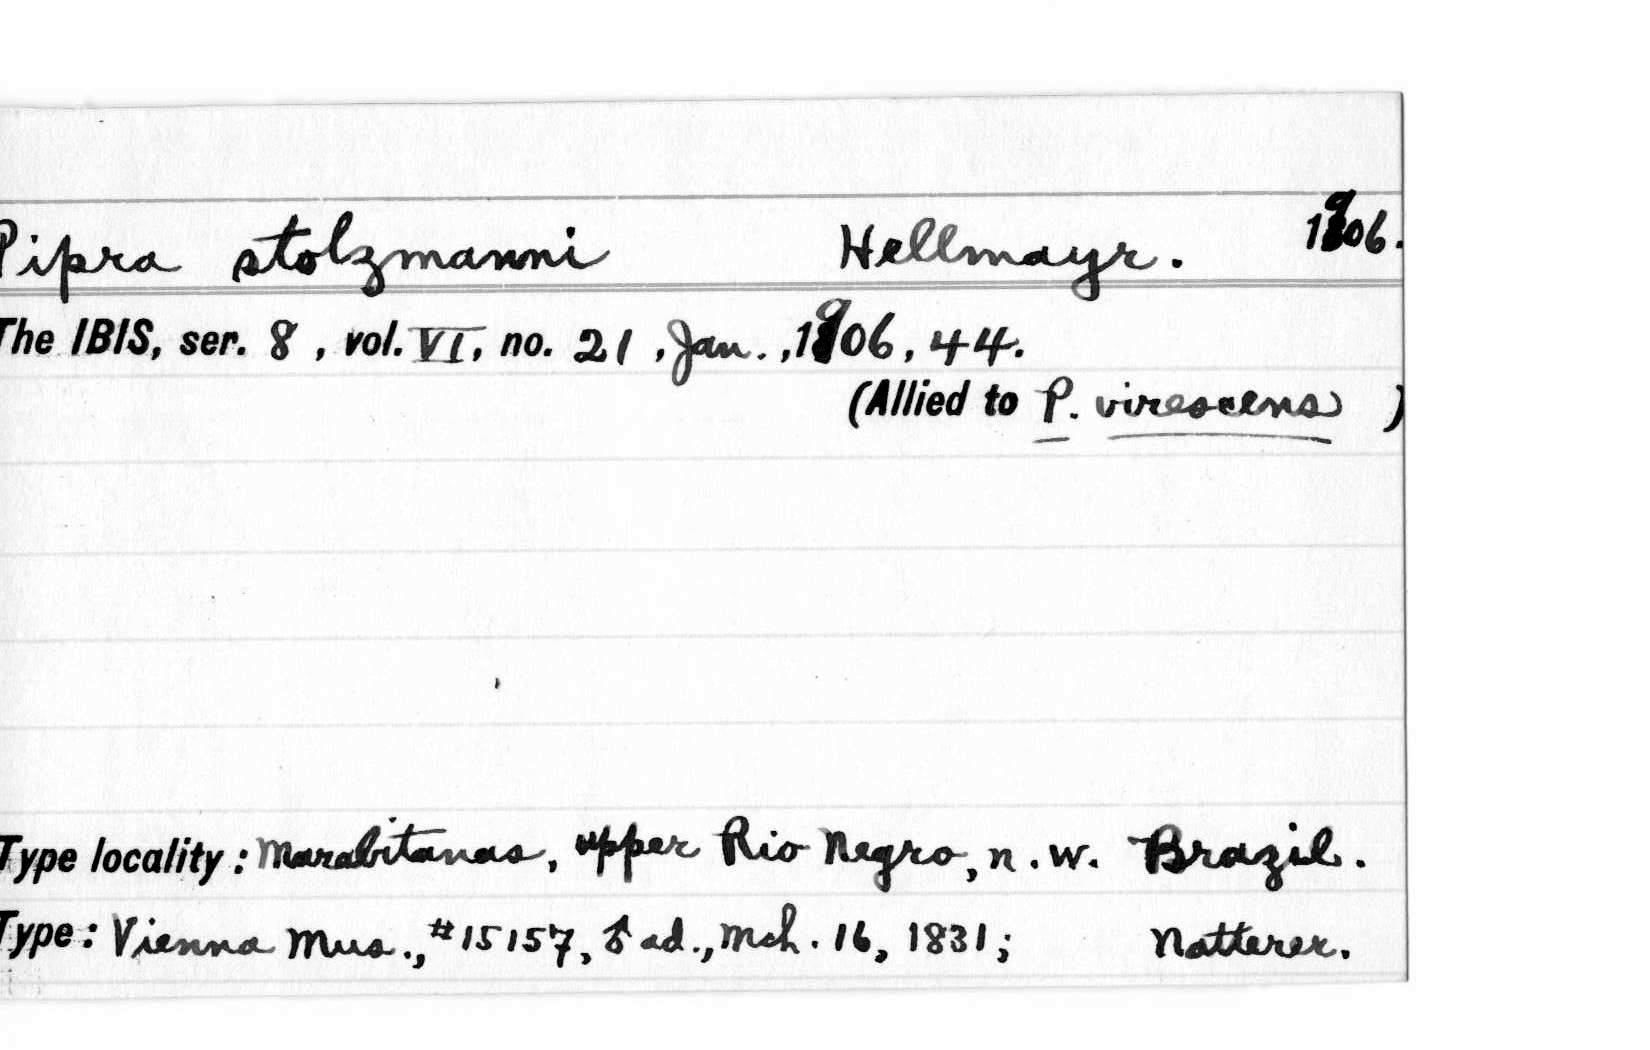 Pipra stolzmanni Hellmayr. 1906.
The IBIS, ser. 8, vol. VI, no. 21, Jan., 1906, 44.
(Allied to P. virescens )
Type locality: Marabitanas, upper Rio Negro, n.w. Brazil.
Type: Vienna Mus., #15157, ♂ ad., Mch. 16, 1831; Natterer.